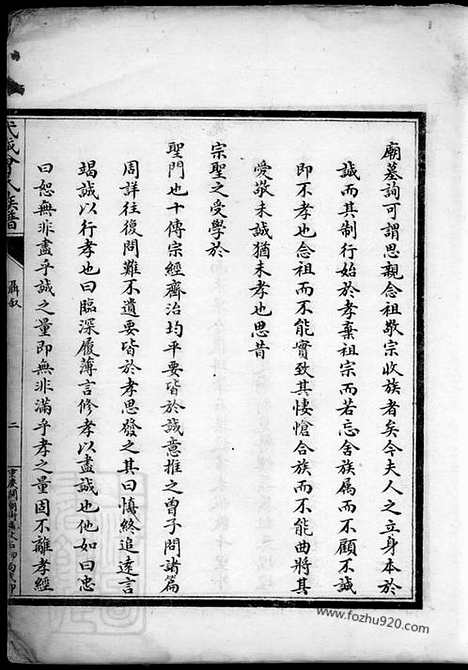 廟墓詢可謂思親念祖敬宗收族者矣今夫人之立身本於
誠而其制行始於孝棄祖宗而若忘舍族属而不顧不誠
即不孝也念祖而不能實致其悽愴合族而不能曲將其
愛敬未誠猶未孝也思昔
宗聖之受學於
聖門也十傳宗經齊治均平要皆於誠意推之曾子問諸篇
周詳往復問難不遺要皆於孝思發之其曰慎終追遠言
竭誠以行孝也曰臨深履薄言修孝以盡誠也他如曰忠
曰恕無非盡乎誠之量即無非滿乎孝之量固不離孝經
氏族譜
聶敘
二
www.fozhu920.com